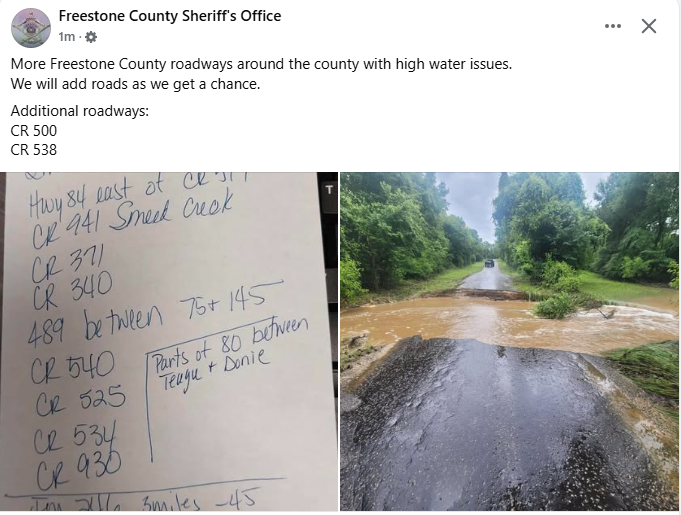 Freestone County Sheriff's Office
1m ·
More Freestone County roadways around the county with high water issues.
We will add roads as we get a chance.
Additional roadways:
CR 500
CR 538
Hwy 84 east of CR
CR 941 Smeed Creek
CR 371
CR 340
489 between 75 + 145
CR 540
Parts of 80 between
Teague + Donie
CR 525
CR 534
CR 930
3miles -45
T